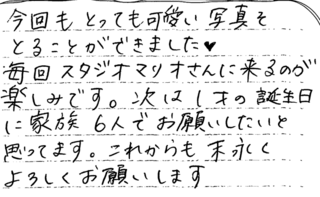 今回も とっても可愛い 写真を
とることができました♥
毎回 スタジオマリオさんに来るのが
楽しみです。次は 1才の 誕生日
に 家族 6人で お願いしたいと
思ってます。これからも 末永く
よろしくお願いします